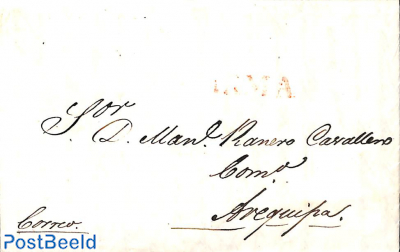 Sor
D. Manl. Ranero Cavallero
Como
Arequipa.
Correo.
© PostBeeld